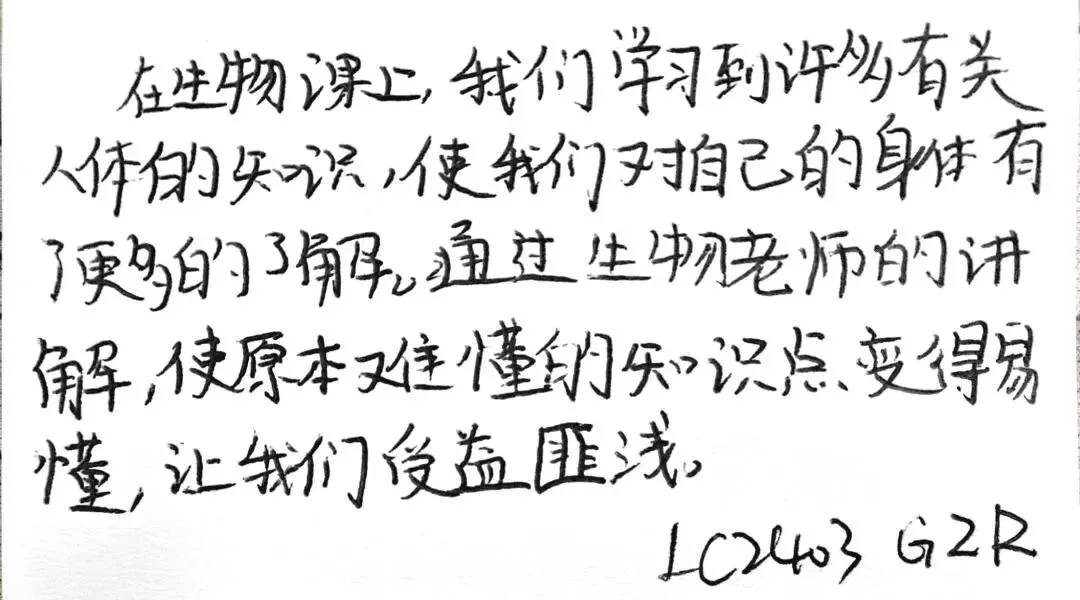 在生物课上，我们学习到许多有关
人体的知识，使我们对自己的身体有
了更多的了解。通过生物老师的讲
解，使原本难懂的知识点变得易
懂，让我们受益匪浅。
LC2403 GZR